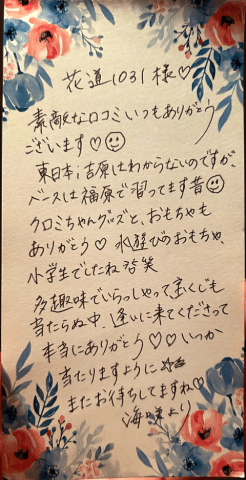 花道1031様♡
素敵な口コミいつもありがとう
ございます♡☺
東日本;吉原はわからないのですが、
ベースは福原で習ってます昔☺
クロミちゃんグッズと、おもちゃも
ありがとう♡ 水遊びのおもちゃ、
小学生でしたね 笑
多趣味でいらっしゃって宝くじも
当たらぬ中、逢いに来てくださって
本当にありがとう♡♡いつか
当たりますように☆☆
またお待ちしてますね♡
より